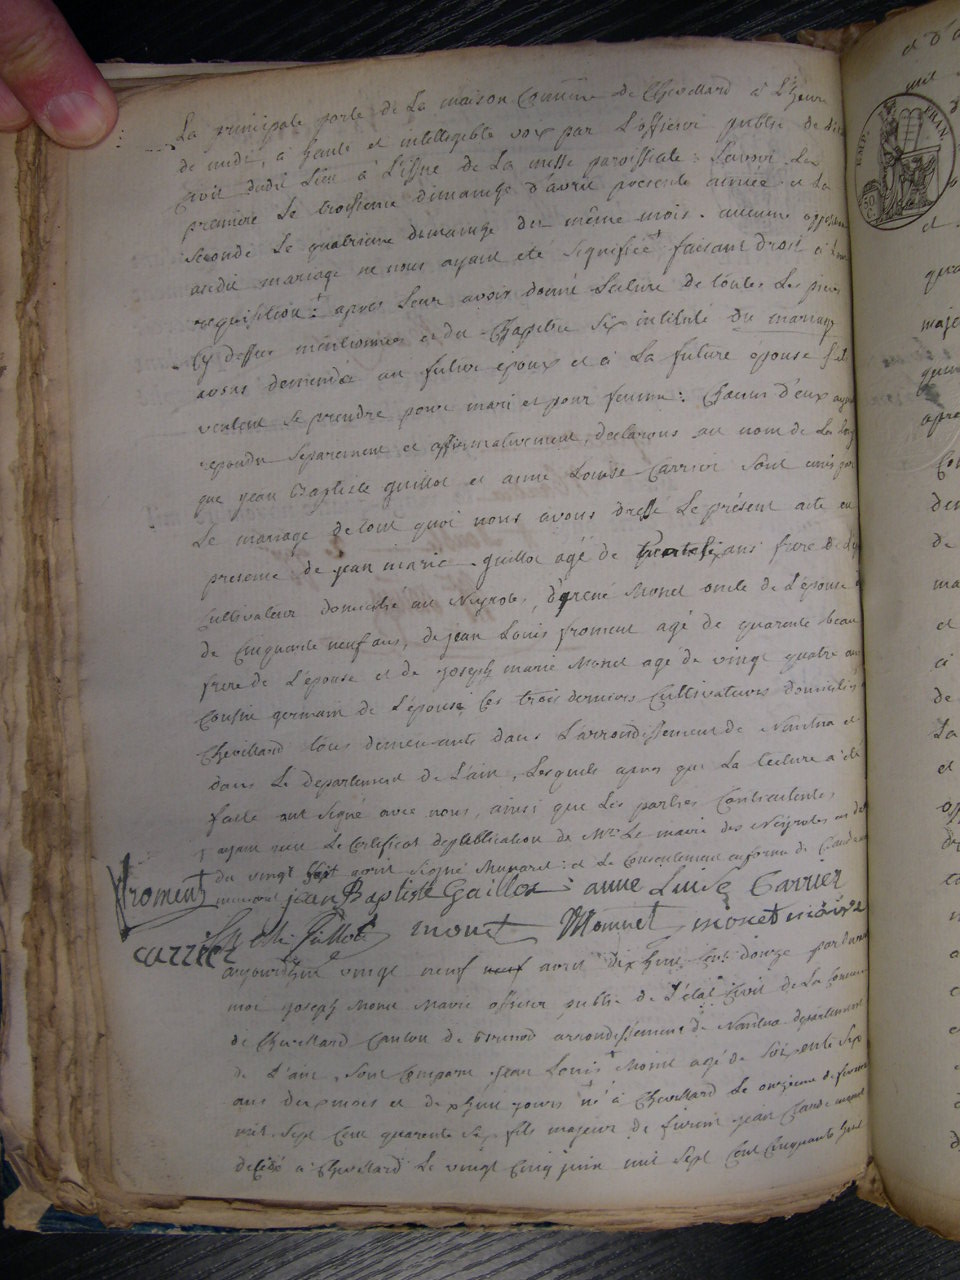 La principale porte de La maison Commune de Chevillard à L'heure
de midi, a haute et intellegible voix par L'officier public de L'état
Civil dudit Lieu à L'issue de La messe paroissiale : Savoir La
première Le troisieme dimanche d'avril presente année et La
seconde Le quatrieme dimanche du même mois. aucune opposition
audit mariage ne nous ayant été signifiée faisant droit à leur
requisition : apres Leur avoir donné Lecture de toutes Les pieces
Cy dessus mentionnés et du Chapitre Six intitulé du mariage
avons demandé au futur epoux et à La future épouse s'ils
veulent se prendre pour mari et pour femme : Chacun d'eux ayant
repondu séparement et affirmativement, declarons au nom de La Loy
que jean Baptiste guillot et anne Louise Carrier sont unis par
Le mariage de tout quoi nous avons dressé Le présent acte en
presence de jean marie guillot agé de trente six ans frere de
Cultivateur domicilié au Neyroles, d'rené Monet oncle de L'épouse
de Cinquante neuf ans, de jean Louis froment agé de quarente beau
frere de L'épouse et de joseph marie Monet agé de vingt quatre ans
Cousin germain de L'épouse Ces trois derniers Cultivateurs domiciliés à
Chevillard tous demeurants dans L'arrondissement de Nantua et
dans Le departement de L'ain, Lesquels apres que La Lecture a été
faite ont signé avec nous, ainsi que Les parties Contractentes
ayant vu Le Certificat de publication de Mr Le maire des Neyroles en date
du vingt sept avril signé Munaret : et Le Consentement en forme de
froment jean Baptiste Guillot : anne Luise Carrier
carrier J M Guillot monet Monnet monet maire
aujourdhui vingt neuf avril dix huit Cent douze pardevant
moi joseph Monet Maire officier public de L'état Civil de La Commune
de Chevillard Canton de Brenod arrondissement de Nantua departement
de L'ain, sont Comparu jean Louis Monet agé de soixente Sep
ans deux mois et dix huit jours né à Chevillard Le onzieme de fevrier
mil Sept Cent quarente fils majeur de furent jean Claude
décédé a Chevillard Le vingt Cinq juin mil Sept Cent Cinquante huit
EMP. FRAN.
50
C.